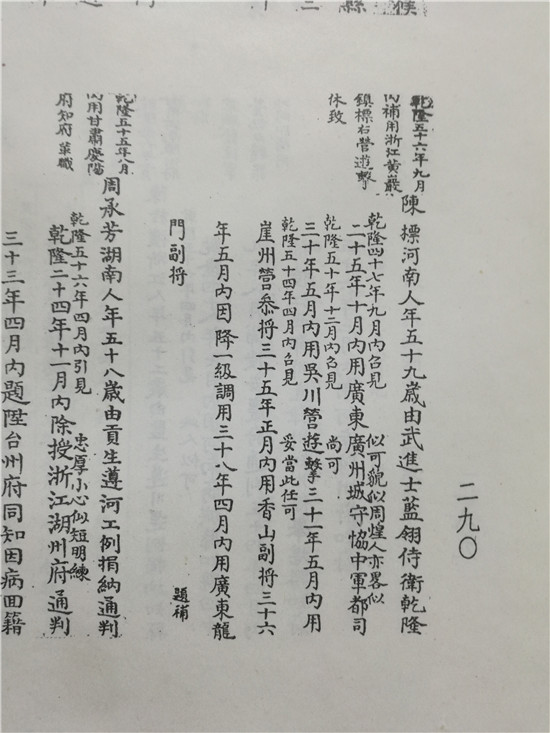 二九〇
乾隆五十六年九月
內補用浙江黃巖
鎮標右營遊擊
休致
陳標河南人年五十九歲由武進士藍翎侍衛乾隆
乾隆四十七年九月內召見 似可貌似周煌人亦畧似
二十五年十月內用廣東廣州城守恊中軍都司
乾隆五十年十二月內召見 尚可
三十年五月內用吳川營遊擊三十一年五月內用
乾隆五十四年四月內召見 妥當此任可
崖州營叅将三十五年正月內用香山副将三十六
年五月內因降一級調用三十八年四月內用廣東龍
門副将 題補
乾隆五十五年八月
內用甘肅慶陽
府知府 革職
周承芳湖南人年五十八歲由貢生遵河工例捐納通判
乾隆五十六年四月內引見 忠厚小心似短明練
乾隆二十四年十一月內除授浙江湖州府通判
三十三年四月內題陞台州府同知因病回籍